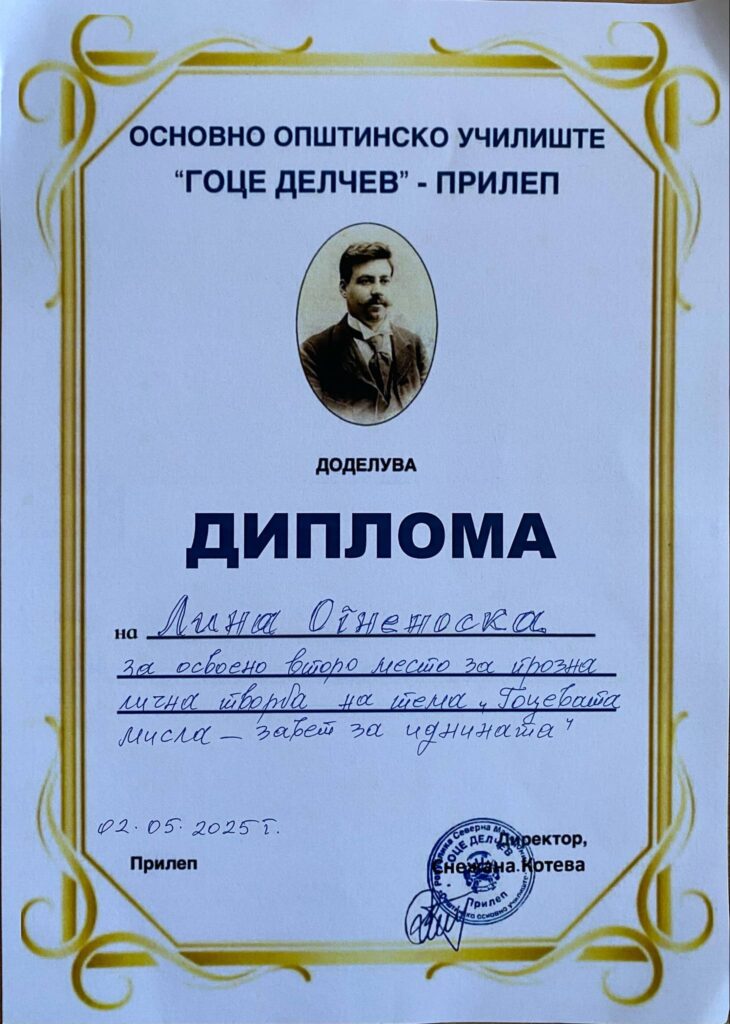 ОСНОВНО ОПШТИНСКО УЧИЛИШТЕ
“ГОЦЕ ДЕЛЧЕВ” - ПРИЛЕП
ДОДЕЛУВА
ДИПЛОМА
на Лина Огненоска
за освоено второ место за прозна
лична творба на тема „Гоцевата
мисла – завет за иднината“
02.05.2025 г.
Прилеп
Директор,
Снежана Котева
Република Северна
ГОЦЕ ДЕЛЧЕВ
Прилеп
Општинско основно училиште